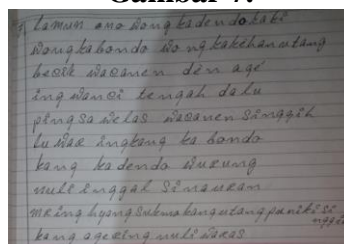 Gambar 7.
3] lamun ono wong kadendo kaki
wong kabondo wong kakehan utang
becik wacanen den age
ing wanci tengah dalu
ping sa welas wacanen singgih
luwar ingkang ka bondo
kang kadendo wurung
nuli inggal sinauran
mring hyang sukma kang utang puniki si
nggih
kang agering nuli waras